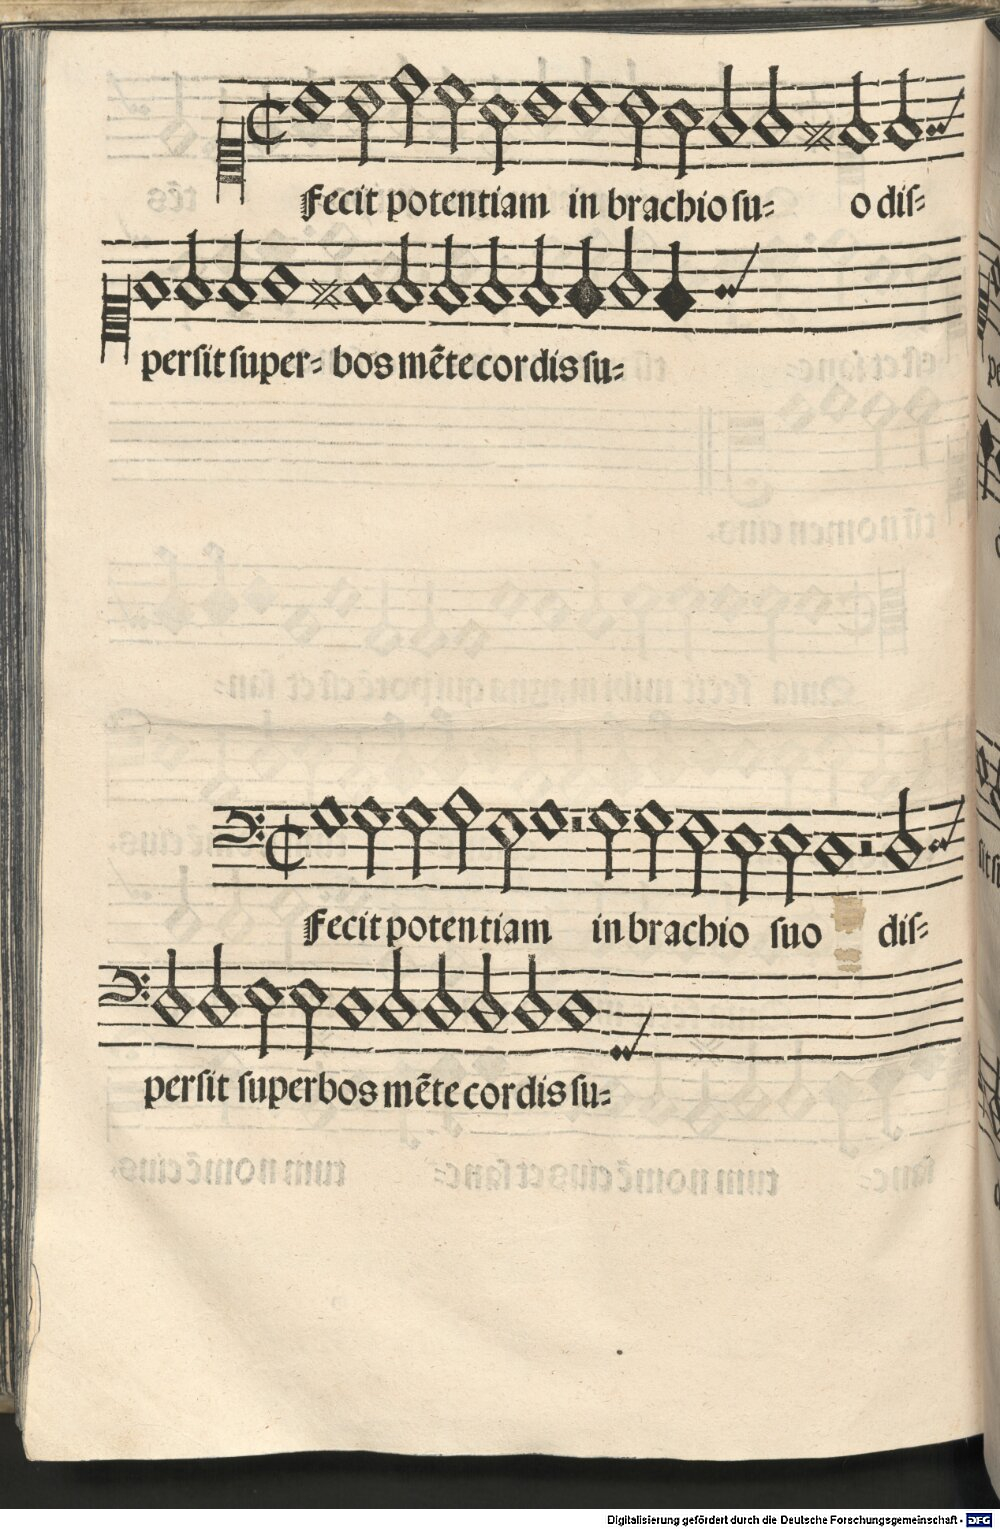 Fecit potentiam in brachio ſu= o diſ=
perſit ſuper= bos mẽte cordis ſu=
Fecit potentiam in brachio ſuo diſ=
perſit ſuperbos mẽte cordis ſu=
Digitalisierung gefördert durch die Deutsche Forschungsgemeinschaft - DFG